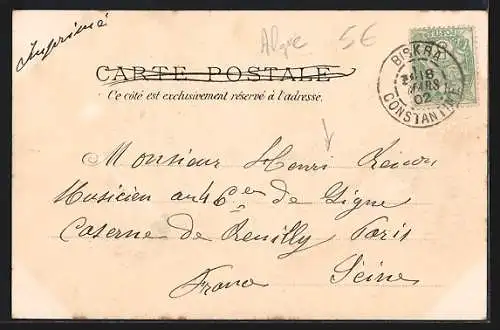 Imprimé
Algre 5€
CARTE POSTALE
Ce côté est exclusivement réservé à l'adresse.
BISKRA
18
MARS
02
CONSTANTINE
Monsieur Henri
Musicien au 46e de Ligne
Caserne de Reuilly Paris
France Seine